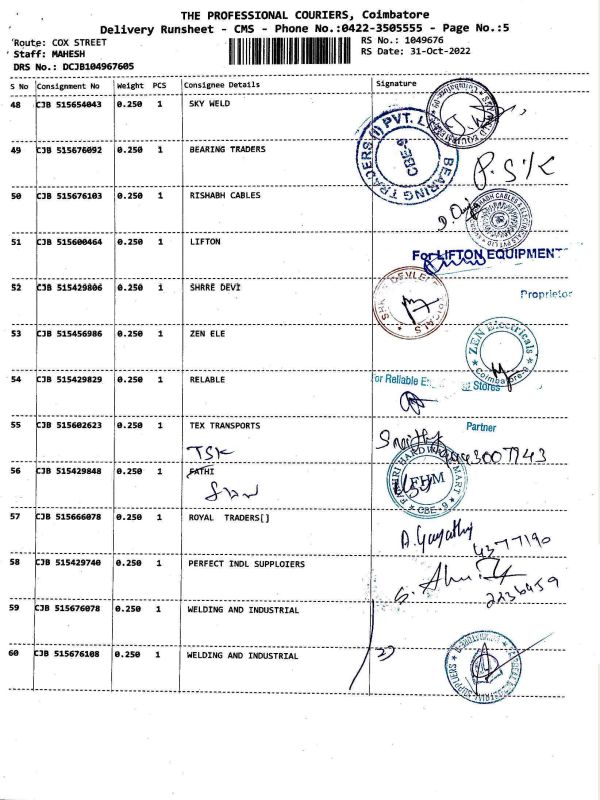 THE PROFESSIONAL COURIERS, Coimbatore
Delivery Runsheet - CMS - Phone No.:0422-3505555 - Page No.:5
Route: COX STREET
RS No.: 1049676
Staff: MAHESH
RS Date: 31-Oct-2022
DRS No.: DCJB104967605
S No Consignment No Weight PCS Consignee Details Signature
48 CJB 515654043 0.250 1 SKY WELD
49 CJB 515676092 0.250 1 BEARING TRADERS
BEARING TRADERS (I) PVT. L
CBE-9
P.S.K
50 CJB 515676103 0.250 1 RISHABH CABLES
51 CJB 515600464 0.250 1 LIFTON
For LIFTON EQUIPMENT
52 CJB 515429806 1 SHRRE DEVI
Proprietor
53 CJB 515456986 0.250 1 ZEN ELE
ZEN Electricals
Coimbatore-9
54 CJB 515429829 0.250 1 RELABLE
or Reliable
Stores
55 CJB 515602623 0.250 1 TEX TRANSPORTS
Partner
TSK
56 CJB 515429848 0.250 1 FATHI
FHM
CBE-9
57 CJB 515666078 0.250 1 ROYAL TRADERS[]
A. Gayathy
4377190
58 CJB 515429740 0.250 1 PERFECT INDL SUPPLOIERS
2236459
59 CJB 515676078 0.250 1 WELDING AND INDUSTRIAL
60 CJB 515676108 0.250 1 WELDING AND INDUSTRIAL